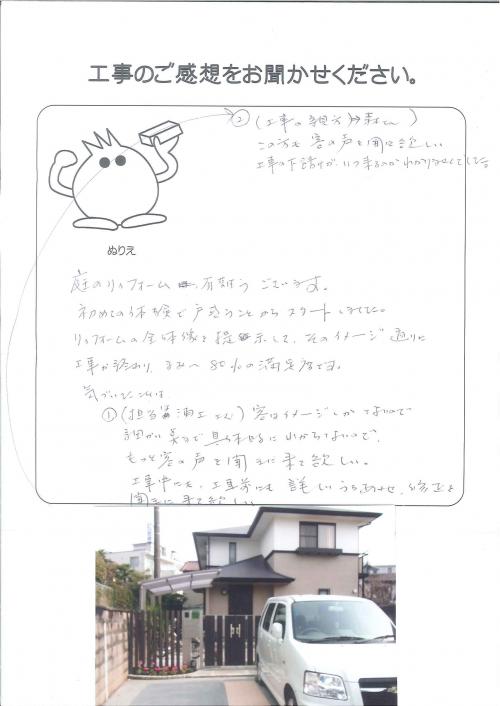 工事のご感想をお聞かせください。
② (工事の親方 森さん)
この方も客の声を聞いて欲しい
工事の下請が、いつ来るのかわかりませんでした。
ぬりえ
庭のリフォーム 有難うございます。
初めての体験で戸惑うことからスタートしました。
リフォームの全体像を提示して、そのイメージ通りに
工事が終わり、 80%の満足度です。
気づいたことは
① (担当 浦工さん) 客はイメージしかてないので
細かい 具体 にわからないので、
もっと客の声を聞きに来て欲しい。
工事中にも、工事前にも詳しいうち合わせ、修正を
聞きに来て欲しい